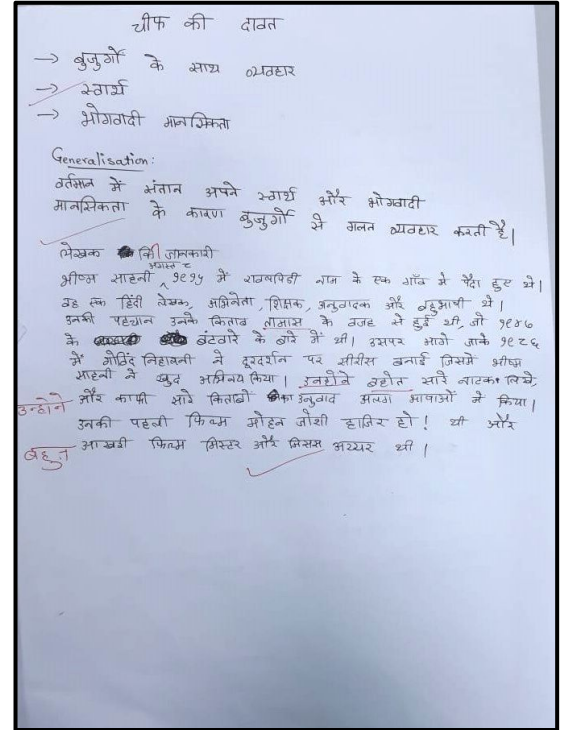 चीफ की दावत
→ बुजुर्गो के साथ व्यवहार
→ स्वार्थ
→ भोगवादी मानसिकता
Generalisation:
वर्तमान में संतान अपने स्वार्थ और भोगवादी
मानसिकता के कारण बुजुर्गो से गलत व्यवहार करती है|
लेखक कि जानकारी
अगस्त ८
भीष्म साहनी १९१५ में रावषपिंडी नाम के एक गाँव मे पैदा हुए थे।
वह एक हिंदी लेखक, अभिनेता, शिक्षक, अनुवादक और बहुभाषी थे।
उनकी पहचान उनके किताब तामास के वजह से हुई थी, जो १९४७
के बंटवारे के बारे में थी। उसपर आगे जाके १९८६
में गोविंद निहालनी ने दूरदर्शन पर सीरीस बनाई जिसमे भीष्म
साहनी ने खुद अभिनय किया। उनहोने बहोत सारे नाटक लिखे,
उन्होंने और काफी सारे किताबो का अनुवाद अलग भाषाओं में किया।
उनकी पहली फिल्म मोहन जोशी हाजिर हो! थी और
बहुत आखरी फिल्म मिस्टर और मिसस अय्यर थी |